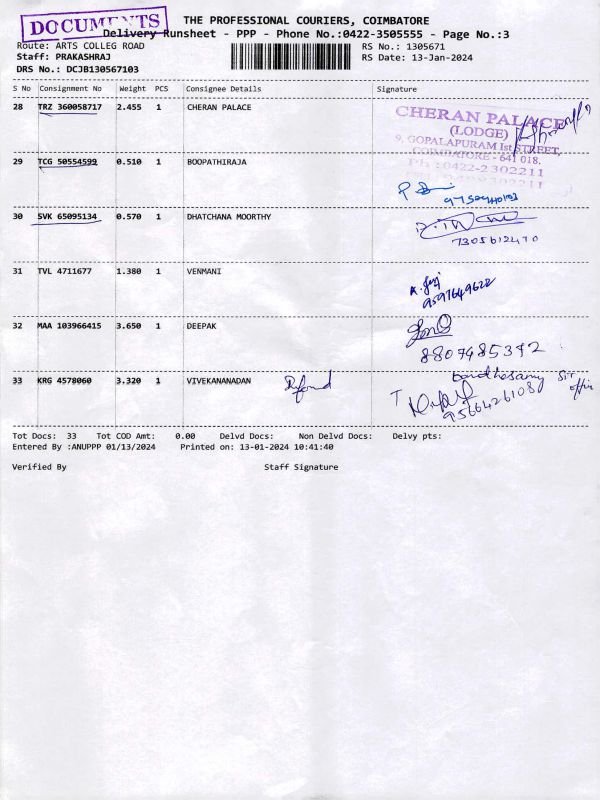 DOCUMENTS
THE PROFESSIONAL COURIERS, COIMBATORE
Delivery Runsheet - PPP - Phone No.:0422-3505555 - Page No.:3
Route: ARTS COLLEG ROAD
RS No.: 1305671
Staff: PRAKASHRAJ
RS Date: 13-Jan-2024
DRS No.: DCJB130567103
S No Consignment No Weight PCS Consignee Details Signature
28 TRZ 360058717 2.455 1 CHERAN PALACE
CHERAN PALACE
(LODGE)
9, GOPALAPURAM Ist STREET,
COIMBATORE - 641 018.
Ph : 0422-2302211
29 TCG 50554599 0.510 1 BOOPATHIRAJA
30 SVK 65095134 0.570 1 DHATCHANA MOORTHY
7305612470
31 TVL 4711677 1.380 1 VENMANI
9597649622
32 MAA 103966415 3.650 1 DEEPAK
8807485342
33 KRG 4578060 3.320 1 VIVEKANANDAN
9566426108
Tot Docs: 33 Tot COD Amt: 0.00 Delvd Docs: Non Delvd Docs: Delvy pts:
Entered By :ANUPPP 01/13/2024 Printed on: 13-01-2024 10:41:40
Verified By Staff Signature